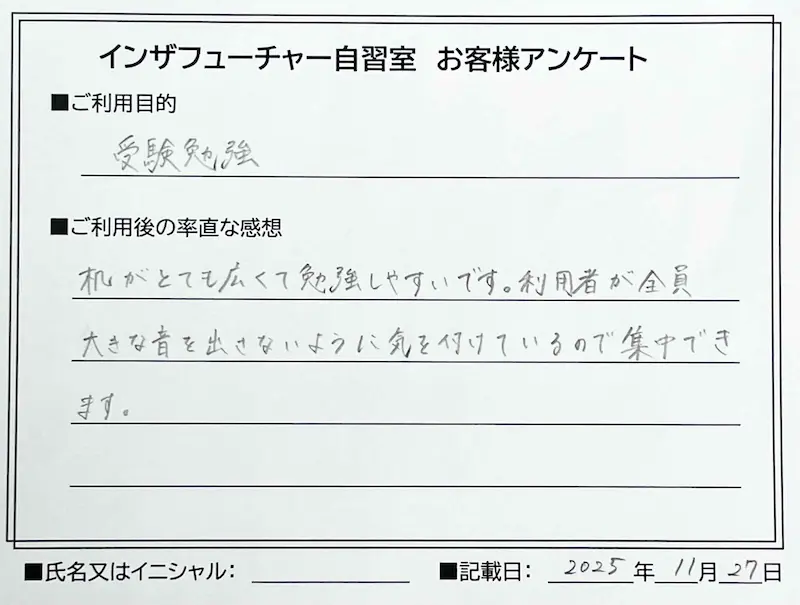 インザフューチャー自習室 お客様アンケート
■ご利用目的
受験勉強
■ご利用後の率直な感想
机がとても広くて勉強しやすいです。利用者が全員
大きな音を出さないように気を付けているので集中でき
ます。
■氏名又はイニシャル： ■記載日： 2025年11月27日